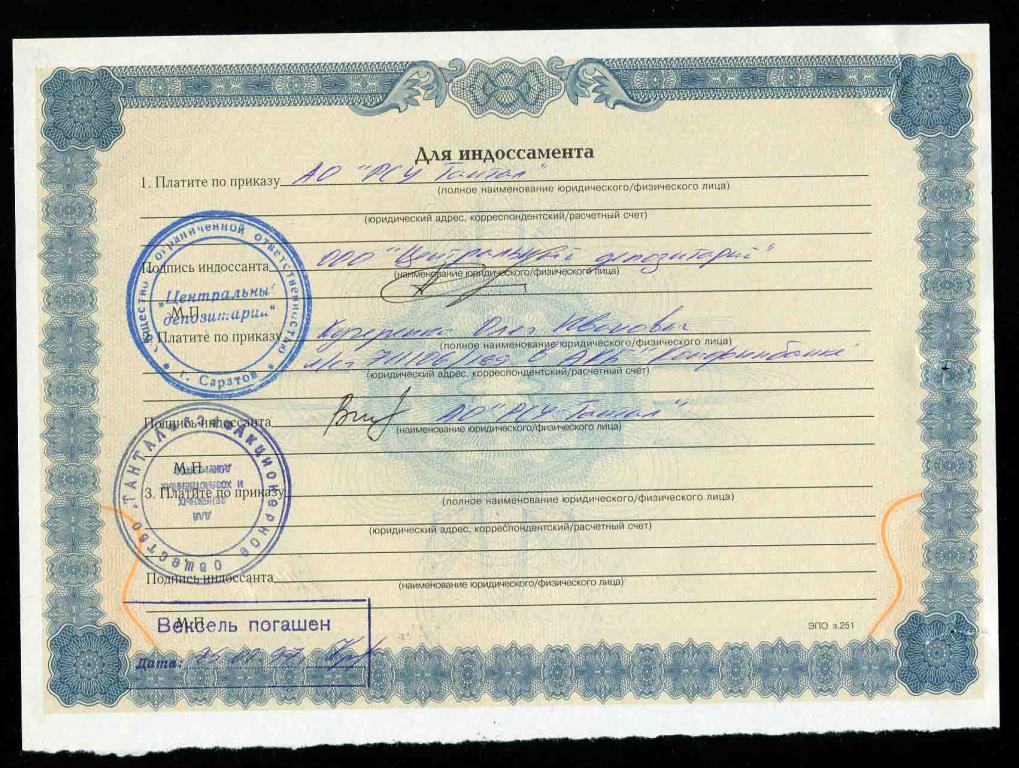 Для индоссамента
1. Платите по приказу АО "РСУ Тантал"
(полное наименование юридического/физического лица)
(юридический адрес, корреспондентский/расчетный счет)
Подпись индоссанта ООО "Центральный депозитарий"
(наименование юридического/физического лица)
М.П.
общество ограниченной ответственностью
"Центральны
депозитарий"
* г. Саратов *
2. Платите по приказу Кучеренко Олег Иванович
(полное наименование юридического/физического лица)
в АКБ
(юридический адрес, корреспондентский/расчетный счет)
Подпись индоссанта АО "РСУ Тантал"
(наименование юридического/физического лица)
М.П.
АКЦИОНЕРНОЕ ОБЩЕСТВО "ТАНТАЛ"
ДЛЯ
ДЕНЕЖНЫХ
И ХОЗЯЙСТВЕННЫХ
3. Платите по приказу
(полное наименование юридического/физического лица)
(юридический адрес, корреспондентский/расчетный счет)
Подпись индоссанта
(наименование юридического/физического лица)
М.П.
Вексель погашен
Дата:
ЭПО з.251